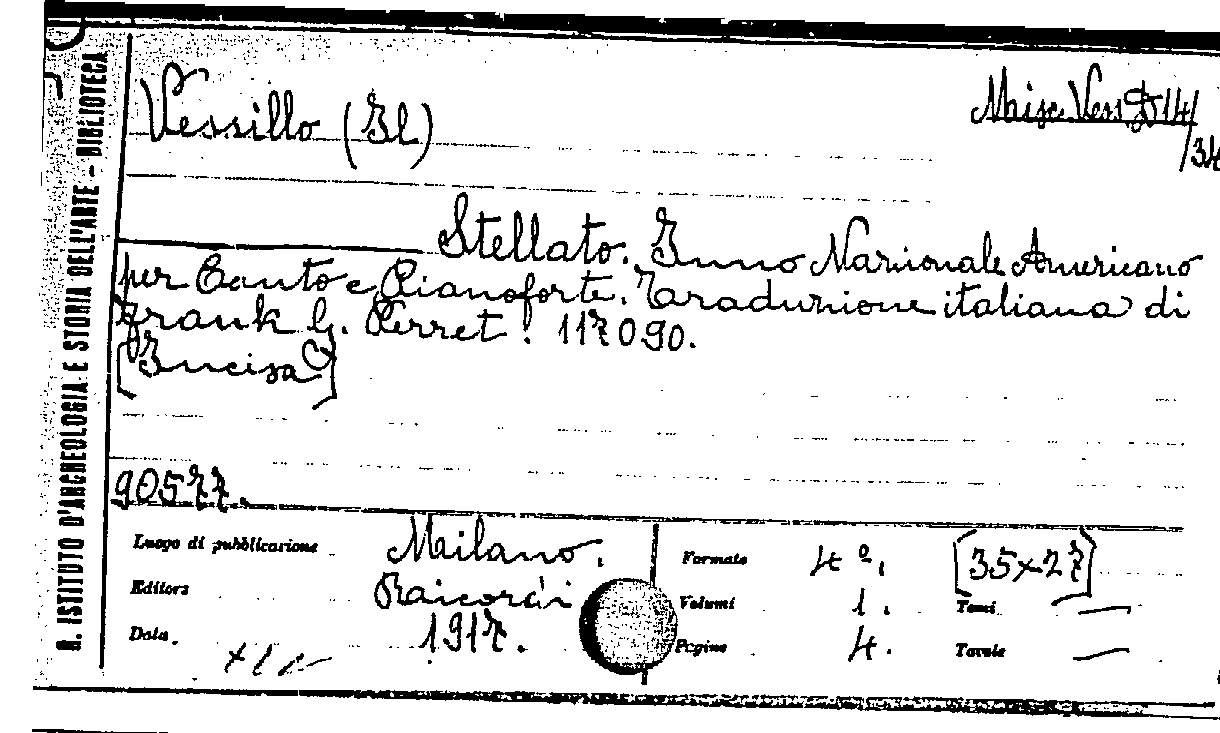 R. ISTITUTO D'ARCHEOLOGIA E STORIA DELL'ARTE - BIBLIOTECA
Vessillo (Il)
Misc. Vess. D 14/
/34
Stellato. Inno Nazionale Americano
per Canto e Pianoforte. Traduzione italiana di
Frank G. Perret. 117090.
[Incisa]
90577.
Luogo di pubblicazione Milano.
Editore Ricordi
Data. 1917.
Formato 4º. [35x27]
Volumi 1. Tomi —
Pagine 4. Tavole —